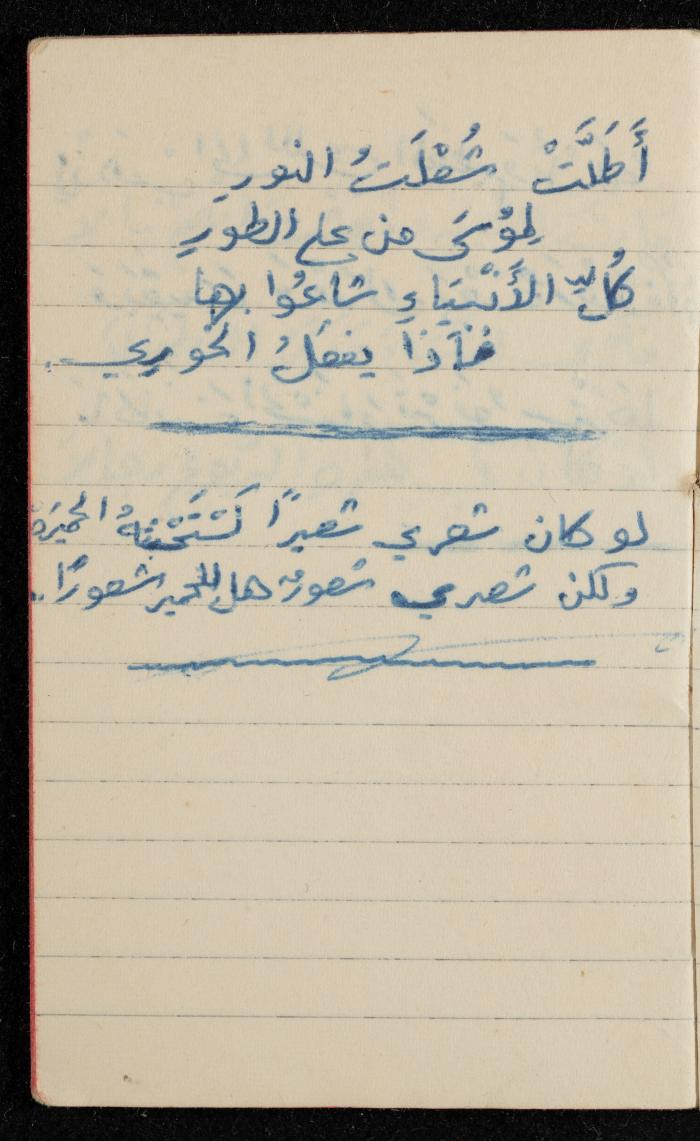 أَطَلَّتْ شُعْلَتُ النورِ
لِموْسَى من على الطورِ
كُلّ الأَنْبِيَاءِ شاعُوا بها
فماذا يفعَلُ الخوري.
لو كان شعري شعيرًا لَسْتَحْسَنَهُ الحميرَهْ
ولكن شعري شعورٌ هل للحمير شعورًا..